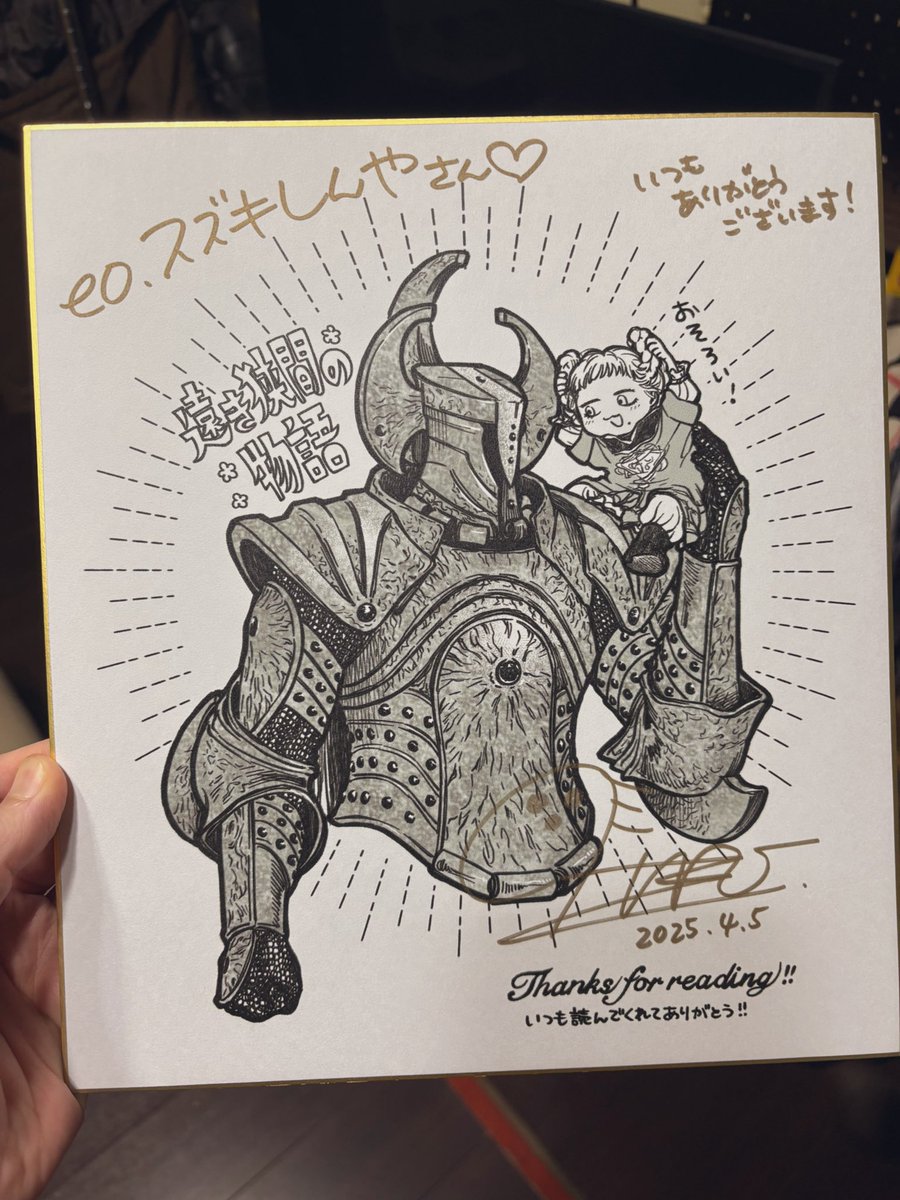 eo.スズキしんやさん♡
いつも
ありがとう
ございます!
遠き狭間の
物語
おそろい!
2025.4.5
Thanks for reading!!
いつも読んでくれてありがとう!!